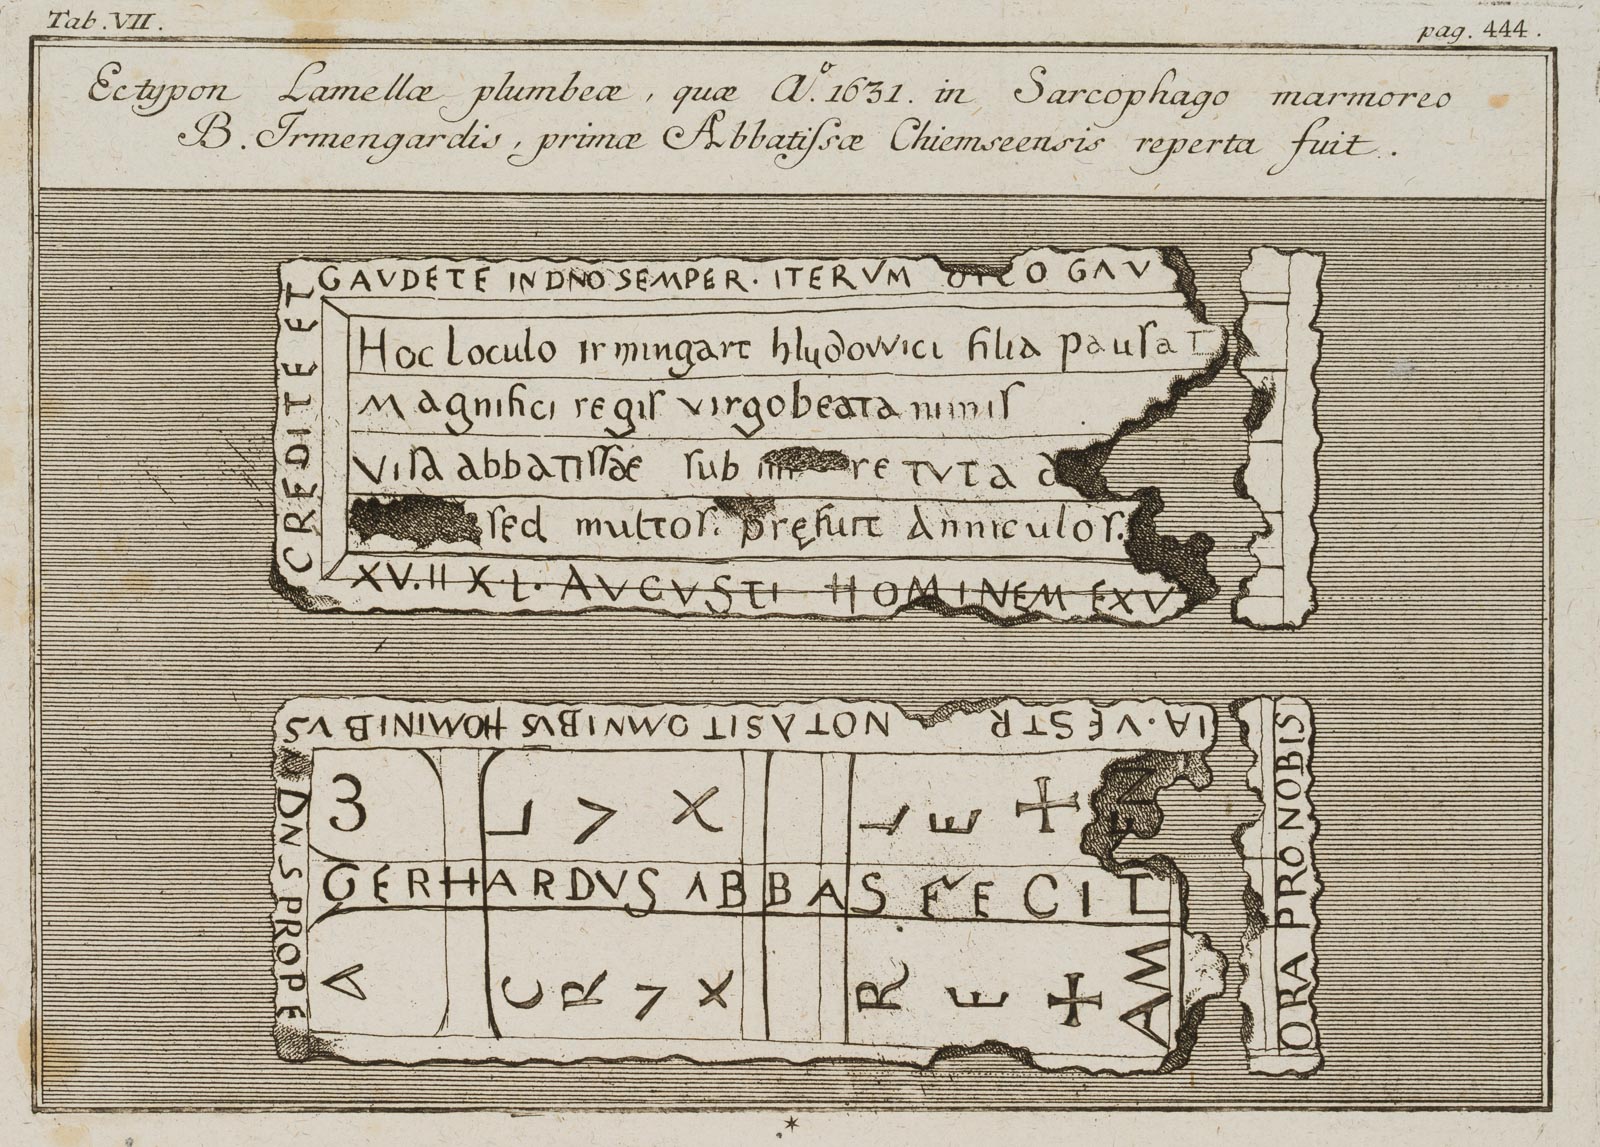 Tab. VII.
pag. 444.
Ectypon Lamellæ plumbeæ, quæ Aº. 1631. in Sarcophago marmoreo
B. Irmengardis, primæ Abbatiſsæ Chiemseensis reperta fuit.
GAVDETE IN DNO SEMPER. ITERVM O GAV
CREDITE ET
Hoc loculo irmingart hludowici filia pauſaT
Magnifici regiſ virgo beata nimiſ
Viſa abbatiſſae ſub re tuta
ſed multoſ. pręfuit anniculoſ.
XV.II KL. AVGVSTI HOMINEM EXV
IA. VESTR NOTA SIT OMNIBVS HOMINIBVS
DNVS PROPE
GERHARDVS ABBAS FECIT
CRVX
LVX
RE
LE
AM
EN
ORA PRO NOBIS